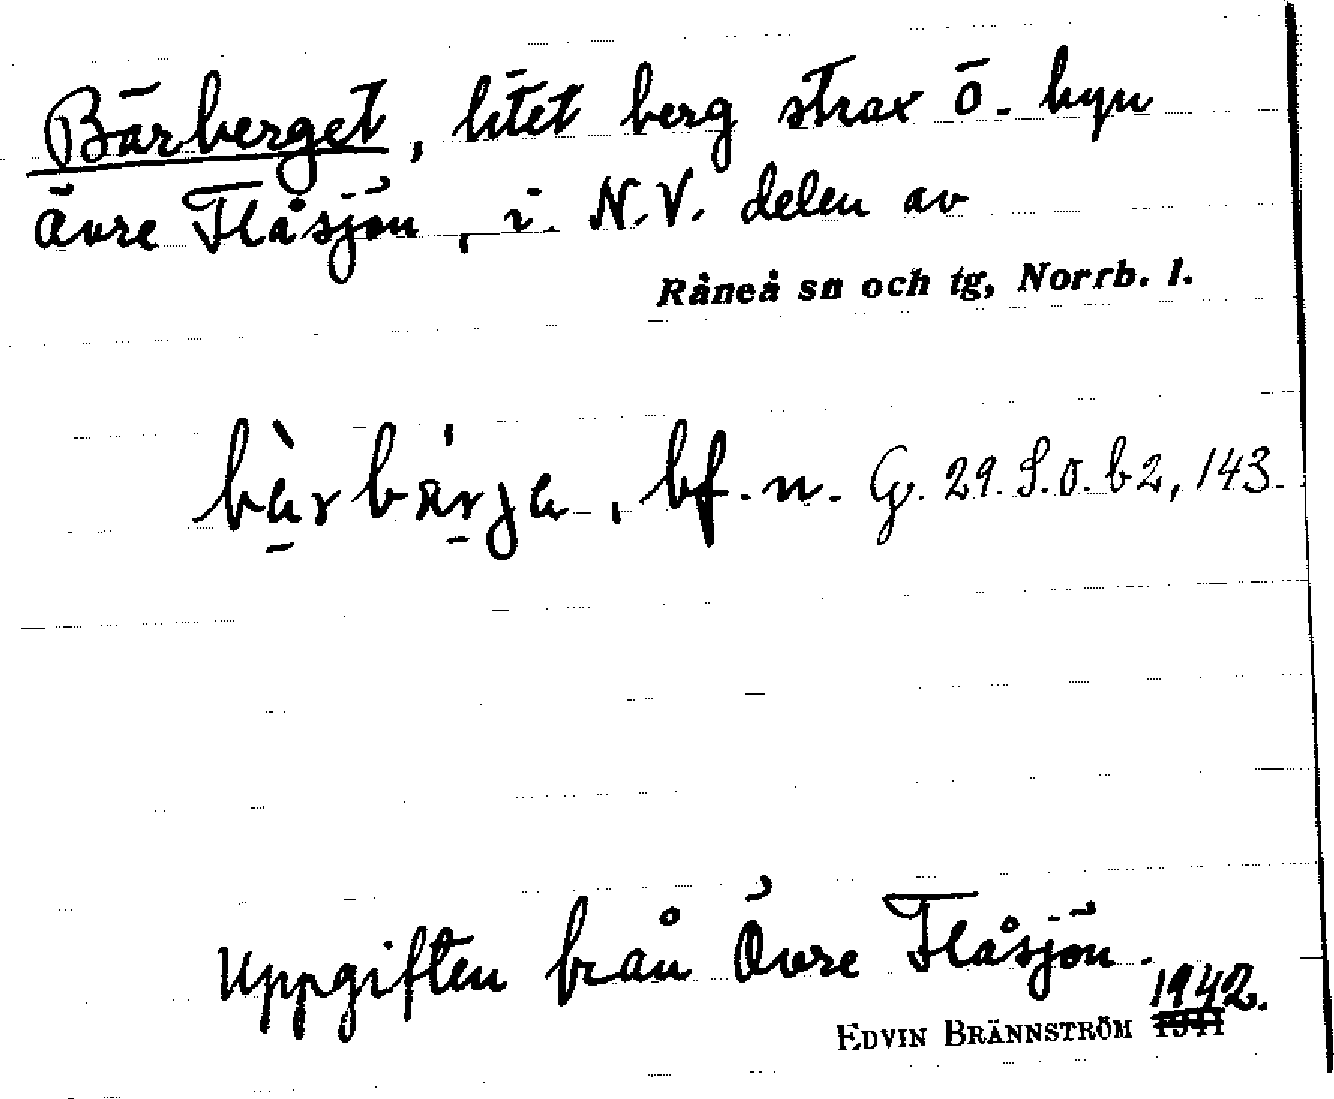 Bärberget, litet berg strax ö. byn
Övre Flåsjön, i N.V. delen av
Råneå sn och tg, Norrb. l.
bàrbärja, bf. n. G. 29. S.O. b2, 143.
Uppgiften från Övre Flåsjön.
1942.
EDVIN BRÄNNSTRÖM 1941